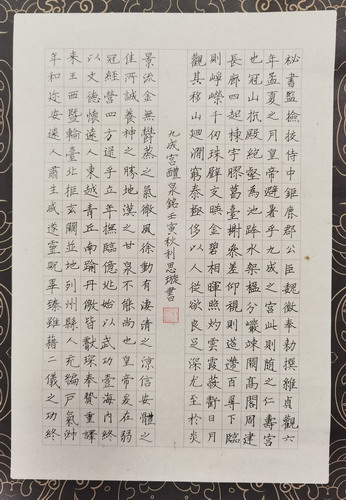 秘書監檢校侍中鉅鹿郡公臣魏徵奉勅撰維貞觀六
年孟夏之月皇帝避暑乎九成之宮此則隨之仁壽宮
也冠山抗殿絕壑為池跨水架楹分巖竦闕高閣周建
長廊四起棟宇膠葛臺榭參差仰視則迢遰百尋下臨
則崢嶸千仞珠壁交暎金碧相暉照灼雲霞蔽虧日月
觀其移山迴澗窮泰極侈以人從欲良足深尤至於炎
九成宮醴泉銘壬寅秋利思璇書
景流金無鬱蒸之氣微風徐動有淒清之涼信安體之
佳所誠養神之勝地漢之甘泉不能尚也皇帝爰在弱
冠經營四方逮乎立年撫臨億兆始以武功壹海內終
以文德懷遠人東越青丘南踰丹儌皆獻琛奉贄重譯
來王西暨輪臺北拒玄闕並地列州縣人充編戶氣淑
年和迩安遠人肅生咸遂靈貺畢臻雖藉二儀之功終